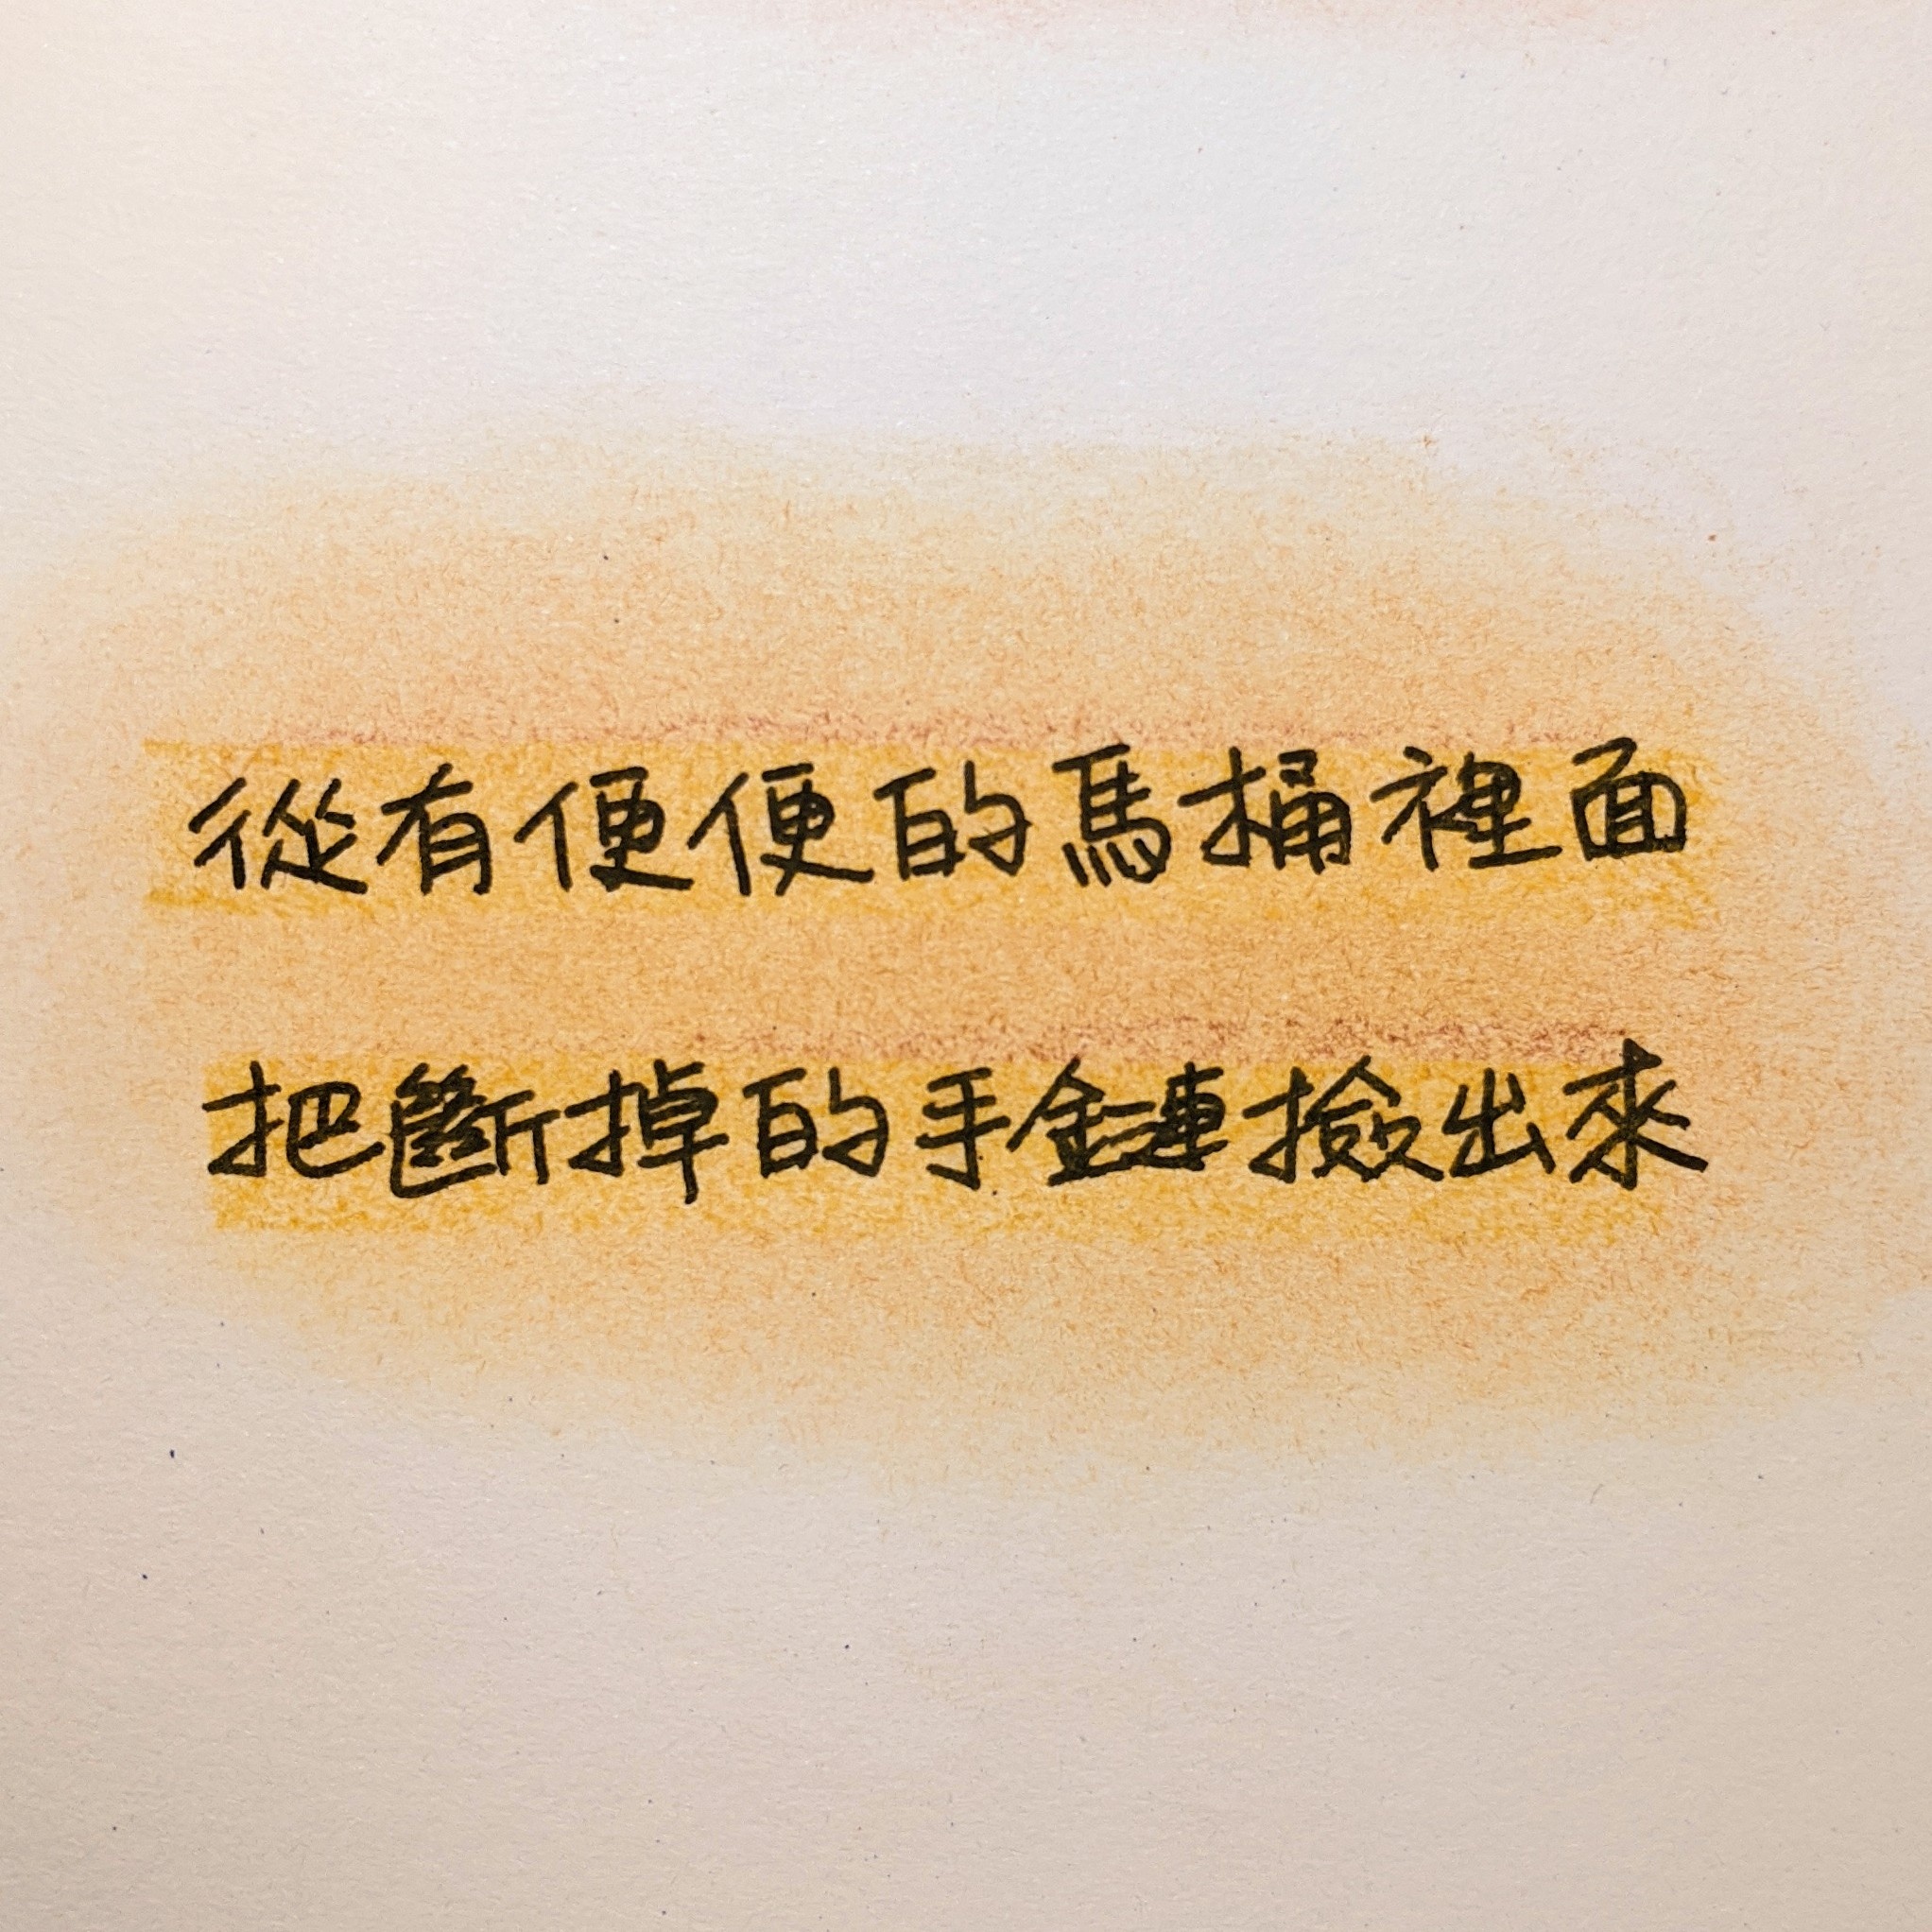 從有便便的馬桶裡面
把斷掉的手鏈撿出來